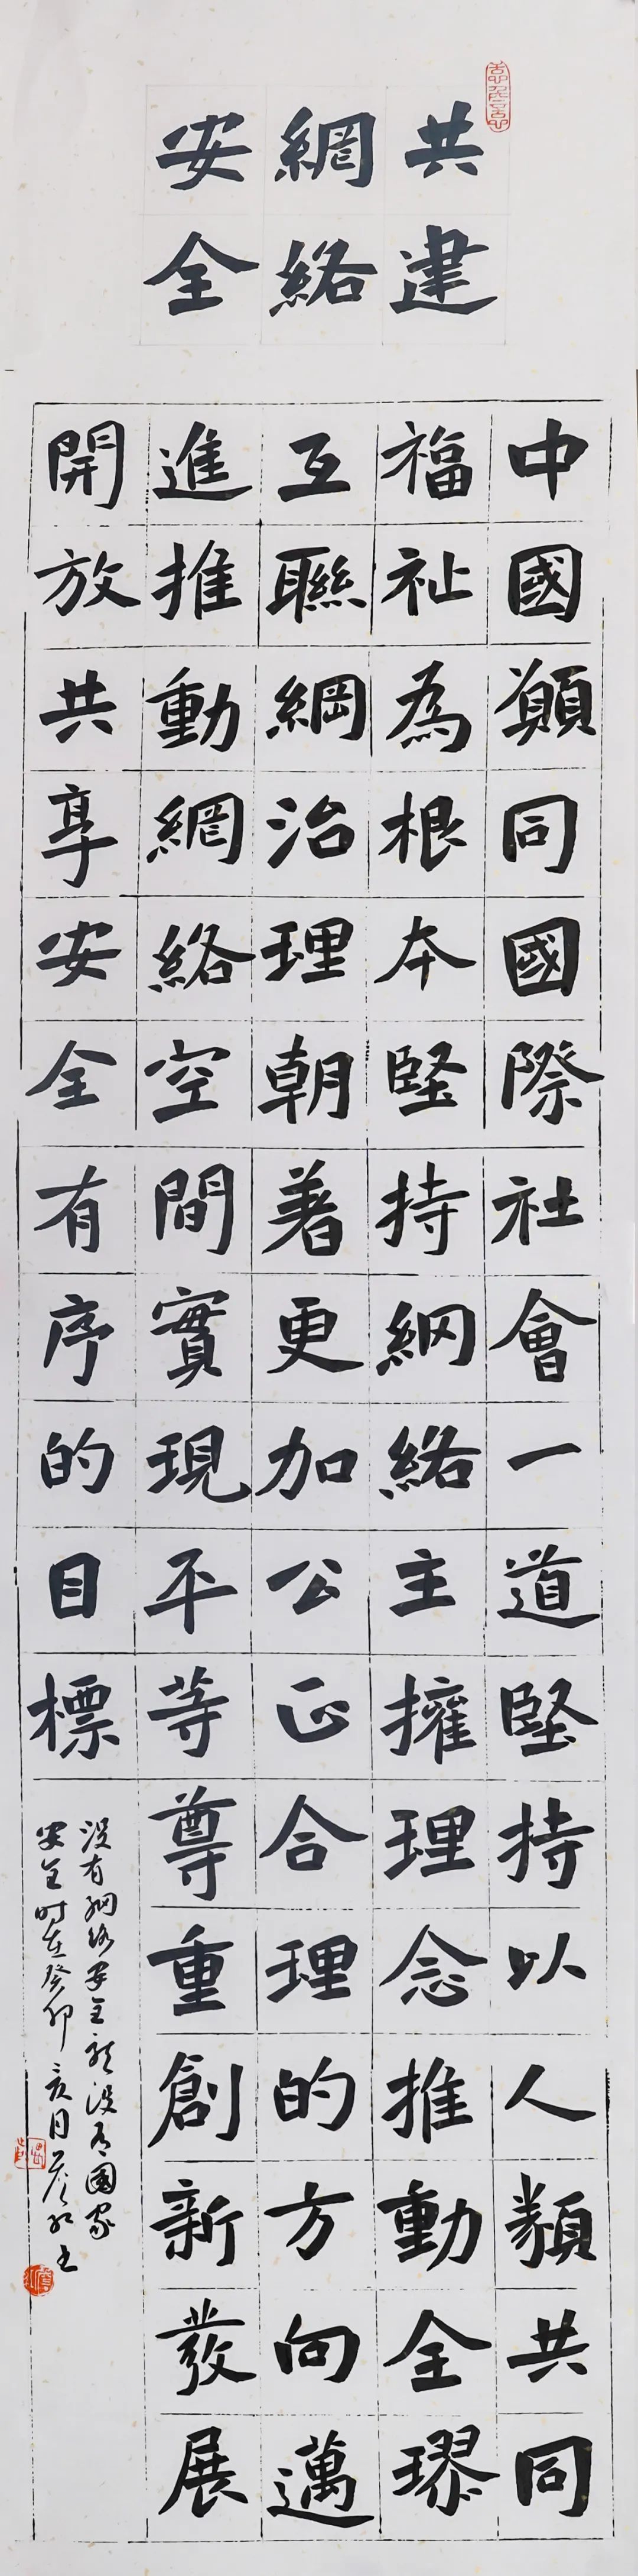 共建
網絡
安全
中國願同國際社會一道堅持以人類共同
福祉為根本堅持網絡主權理念推動全球
互聯網治理朝著更加公正合理的方向邁
進推動網絡空間實現平等尊重創新發展
開放共享安全有序的目標
沒有網絡安全就沒有國家
安全時在癸卯亥月